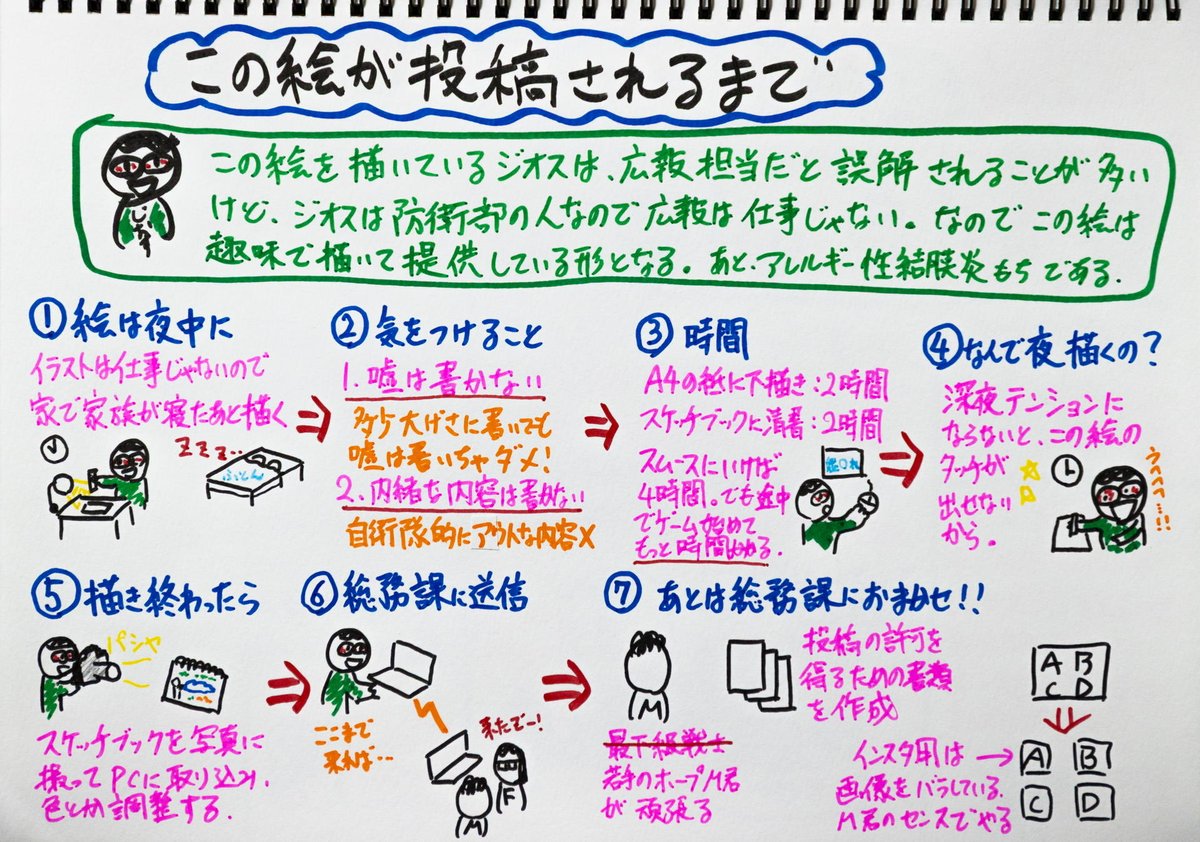 この絵が投稿されるまで
この絵を描いているジオスは、広報担当だと誤解されることが多い
けど、ジオスは防衛部の人なので広報は仕事じゃない。なのでこの絵は
趣味で描いて提供している形となる。あと、アレルギー性結膜炎もちである.
じおす
①絵は夜中に
イラストは仕事じゃないので
家で家族が寝たあと描く
ZZZ…
ふとん
②気をつけること
1.嘘は書かない
多少大げさに書いても
嘘は書いちゃダメ!
2.内緒な内容は書かない
自衛隊的にアウトな内容×
③時間
A4の紙に下描き:2時間
スケッチブックに清書:2時間
スムースにいけば
4時間。でも途中
でゲーム始めて
もっと時間かかる.
④なんで夜描くの?
深夜テンションに
ならないと、この絵の
タッチが
出せない
から。
うへへっ…!!
⑤描き終わったら
パシャ
スケッチブックを写真に
撮ってPCに取り込み.
色とか調整する.
⑥総務課に送信
ここまで
来れば…
来たでー!
M
F
⑦あとは総務課におまかせ!!
M
投稿の許可を
得るための書類
を作成
最下級戦士
若手のホープM君
が頑張る
A B
C D
インスタ用は→
画像をバラしている.
M君のセンスでやる
A B
C D